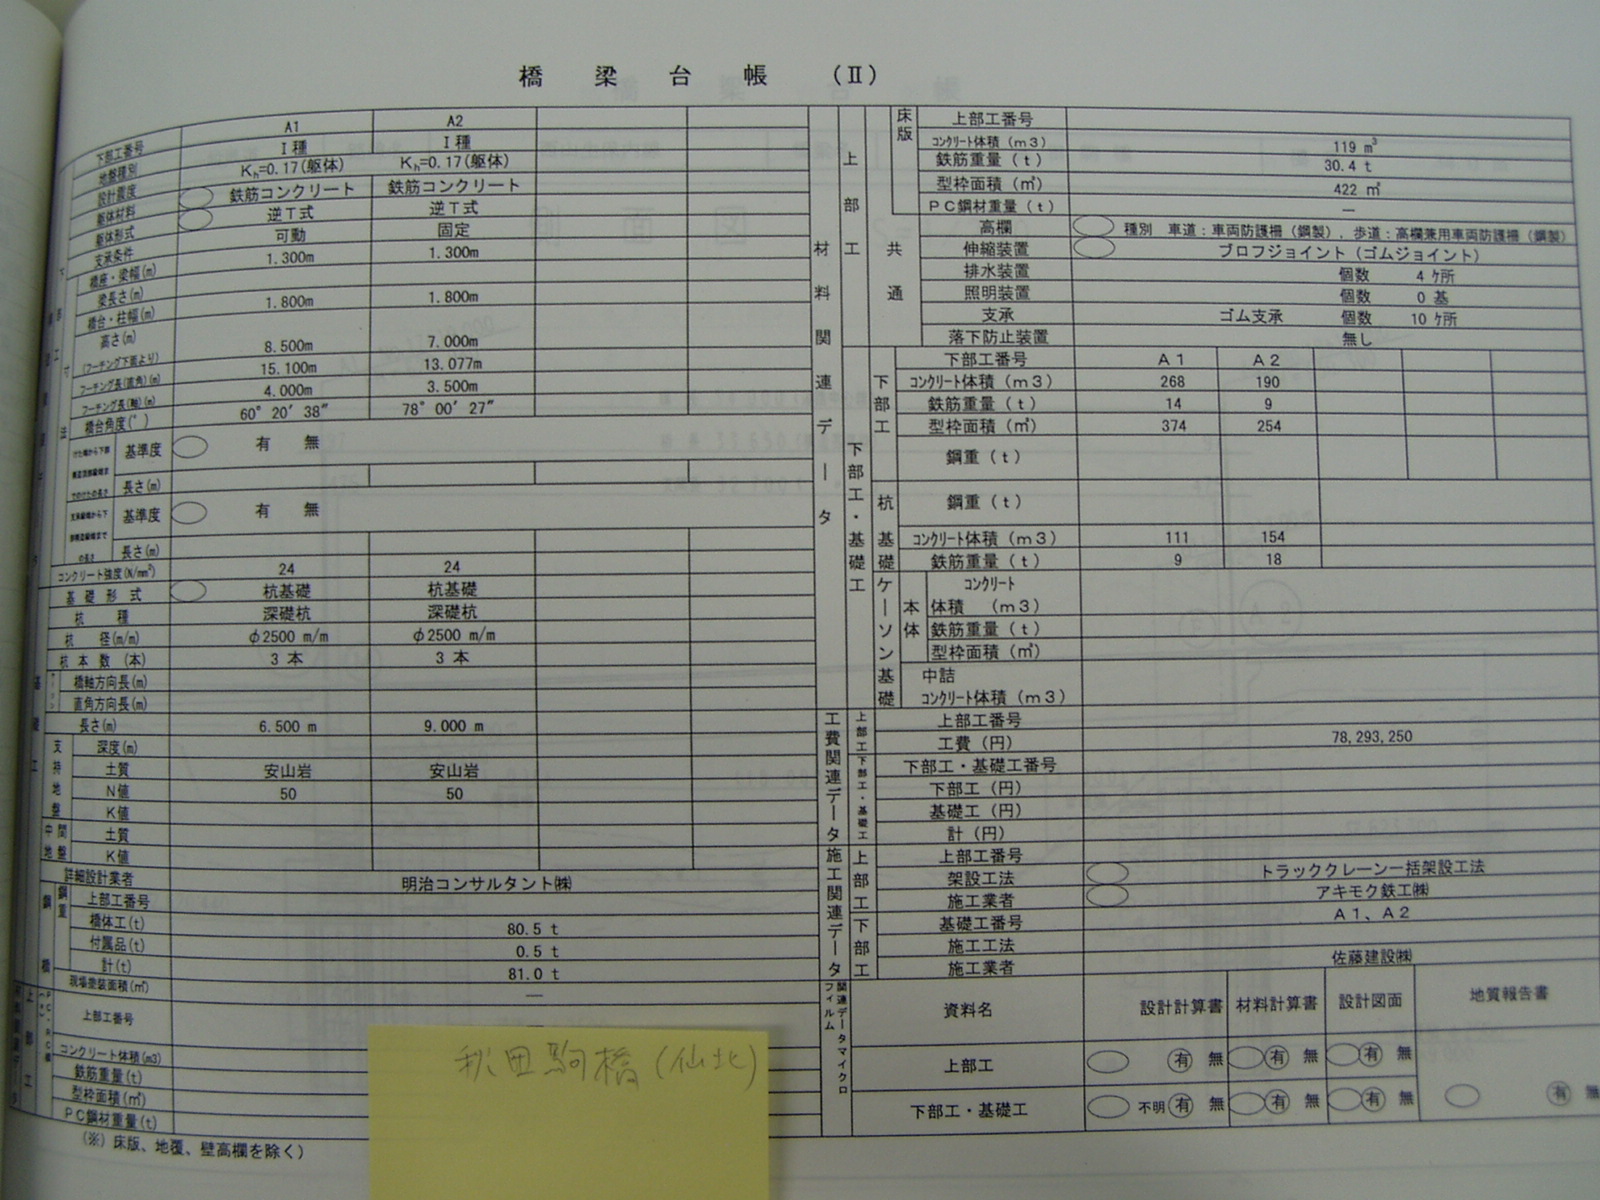 橋 梁 台 帳 (Ⅱ)
下部工番号 A1 A2
地盤種別 Ⅰ種 Ⅰ種
設計震度 Kh=0.17(躯体) Kh=0.17(躯体)
躯体材料 鉄筋コンクリート 鉄筋コンクリート
躯体形式 逆T式 逆T式
支承条件 可動 固定
橋座・梁幅(m) 1.300m 1.300m
梁長さ(m)
橋台・柱幅(m) 1.800m 1.800m
高さ(m)
(フーチング下面より) 8.500m 7.000m
フーチング長(直角)(m) 15.100m 13.077m
フーチング長(軸)(m) 4.000m 3.500m
橋台角度(°) 60°20′38″ 78°00′27″
基準度 有 無
長さ(m)
基準度 有 無
長さ(m)
コンクリート強度(N/mm²) 24 24
基礎工
基 礎 形 式 杭基礎 杭基礎
杭 種 深礎杭 深礎杭
杭 径(m/m) φ2500 m/m φ2500 m/m
杭 本 数 (本) 3 本 3 本
橋軸方向長(m)
直角方向長(m)
長さ(m) 6.500 m 9.000 m
支持地盤
深度(m)
土質 安山岩 安山岩
N値 50 50
K値
中間地盤
土質
K値
詳細設計業者 明治コンサルタント㈱
鋼橋
鋼重
上部工番号
橋体工(t) 80.5 t
付属品(t) 0.5 t
計(t) 81.0 t
現場塗装面積(㎡) —
上部工
上部工番号
コンクリート体積(m3)
鉄筋重量(t)
型枠面積(㎡)
PC鋼材重量(t)
(※) 床版、地覆、壁高欄を除く)
秋田駒橋(仙北)
材料関連データ
上部工
床版
上部工番号
コンクリート体積(m3) 119 m³
鉄筋重量(t) 30.4 t
型枠面積(㎡) 422 ㎡
PC鋼材重量(t) —
共通
高欄 種別 車道:車両防護柵(鋼製), 歩道:高欄兼用車両防護柵(鋼製)
伸縮装置 プロフジョイント(ゴムジョイント)
排水装置 個数 4 ケ所
照明装置 個数 0 基
支承 ゴム支承 個数 10 ケ所
落下防止装置 無し
下部工・基礎工
下部工
下部工番号 A1 A2
コンクリート体積(m3) 268 190
鉄筋重量(t) 14 9
型枠面積(㎡) 374 254
鋼重(t)
杭基礎
鋼重(t)
コンクリート体積(m3) 111 154
鉄筋重量(t) 9 18
ケーソン基礎
本体
コンクリート
体積 (m3)
鉄筋重量(t)
型枠面積(㎡)
中詰
コンクリート体積(m3)
工費関連データ
上部工
上部工番号
工費(円) 78,293,250
下部工・基礎工
下部工・基礎工番号
下部工(円)
基礎工(円)
計(円)
施工関連データ
上部工
上部工番号
架設工法 トラッククレーン一括架設工法
施工業者 アキモク鉄工㈱
下部工
基礎工番号 A1、A2
施工工法
施工業者 佐藤建設㈱
関連データマイクロフィルム
資料名 設計計算書 材料計算書 設計図面 地質報告書
上部工 有 無 有 無 有 無
下部工・基礎工 不明 有 無 有 無 有 無 有 無